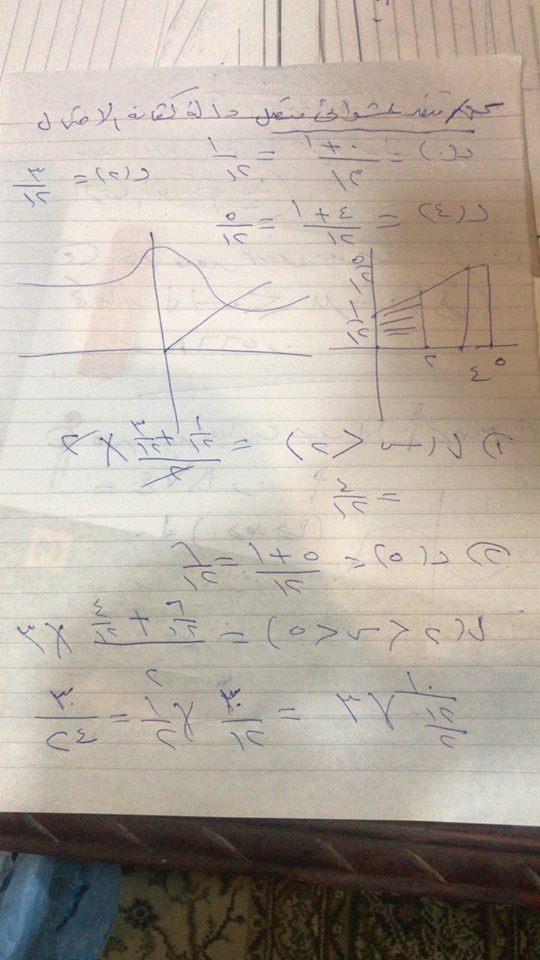 متغير عشوائي متصل دالة كثافة الاحتمال
د(٠) = ٠+١/١٢ = ١/١٢
د(٢) = ٣/١٢
د(٤) = ٤+١/١٢ = ٥/١٢
٢ ٤ ٥
١) ل(س < ٢) = (١/١٢ + ٣/١٢)/٢ × ٢
= ٤/١٢
٢) د(٥) = ٥+١/١٢ = ٦/١٢
ل(٢ < س < ٥) = (٦/١٢ + ٤/١٢)/٢ × ٣
١٠/١٢/٢ × ٣ = ٣٠/١٢ × ١/٢ = ٣٠/٢٤